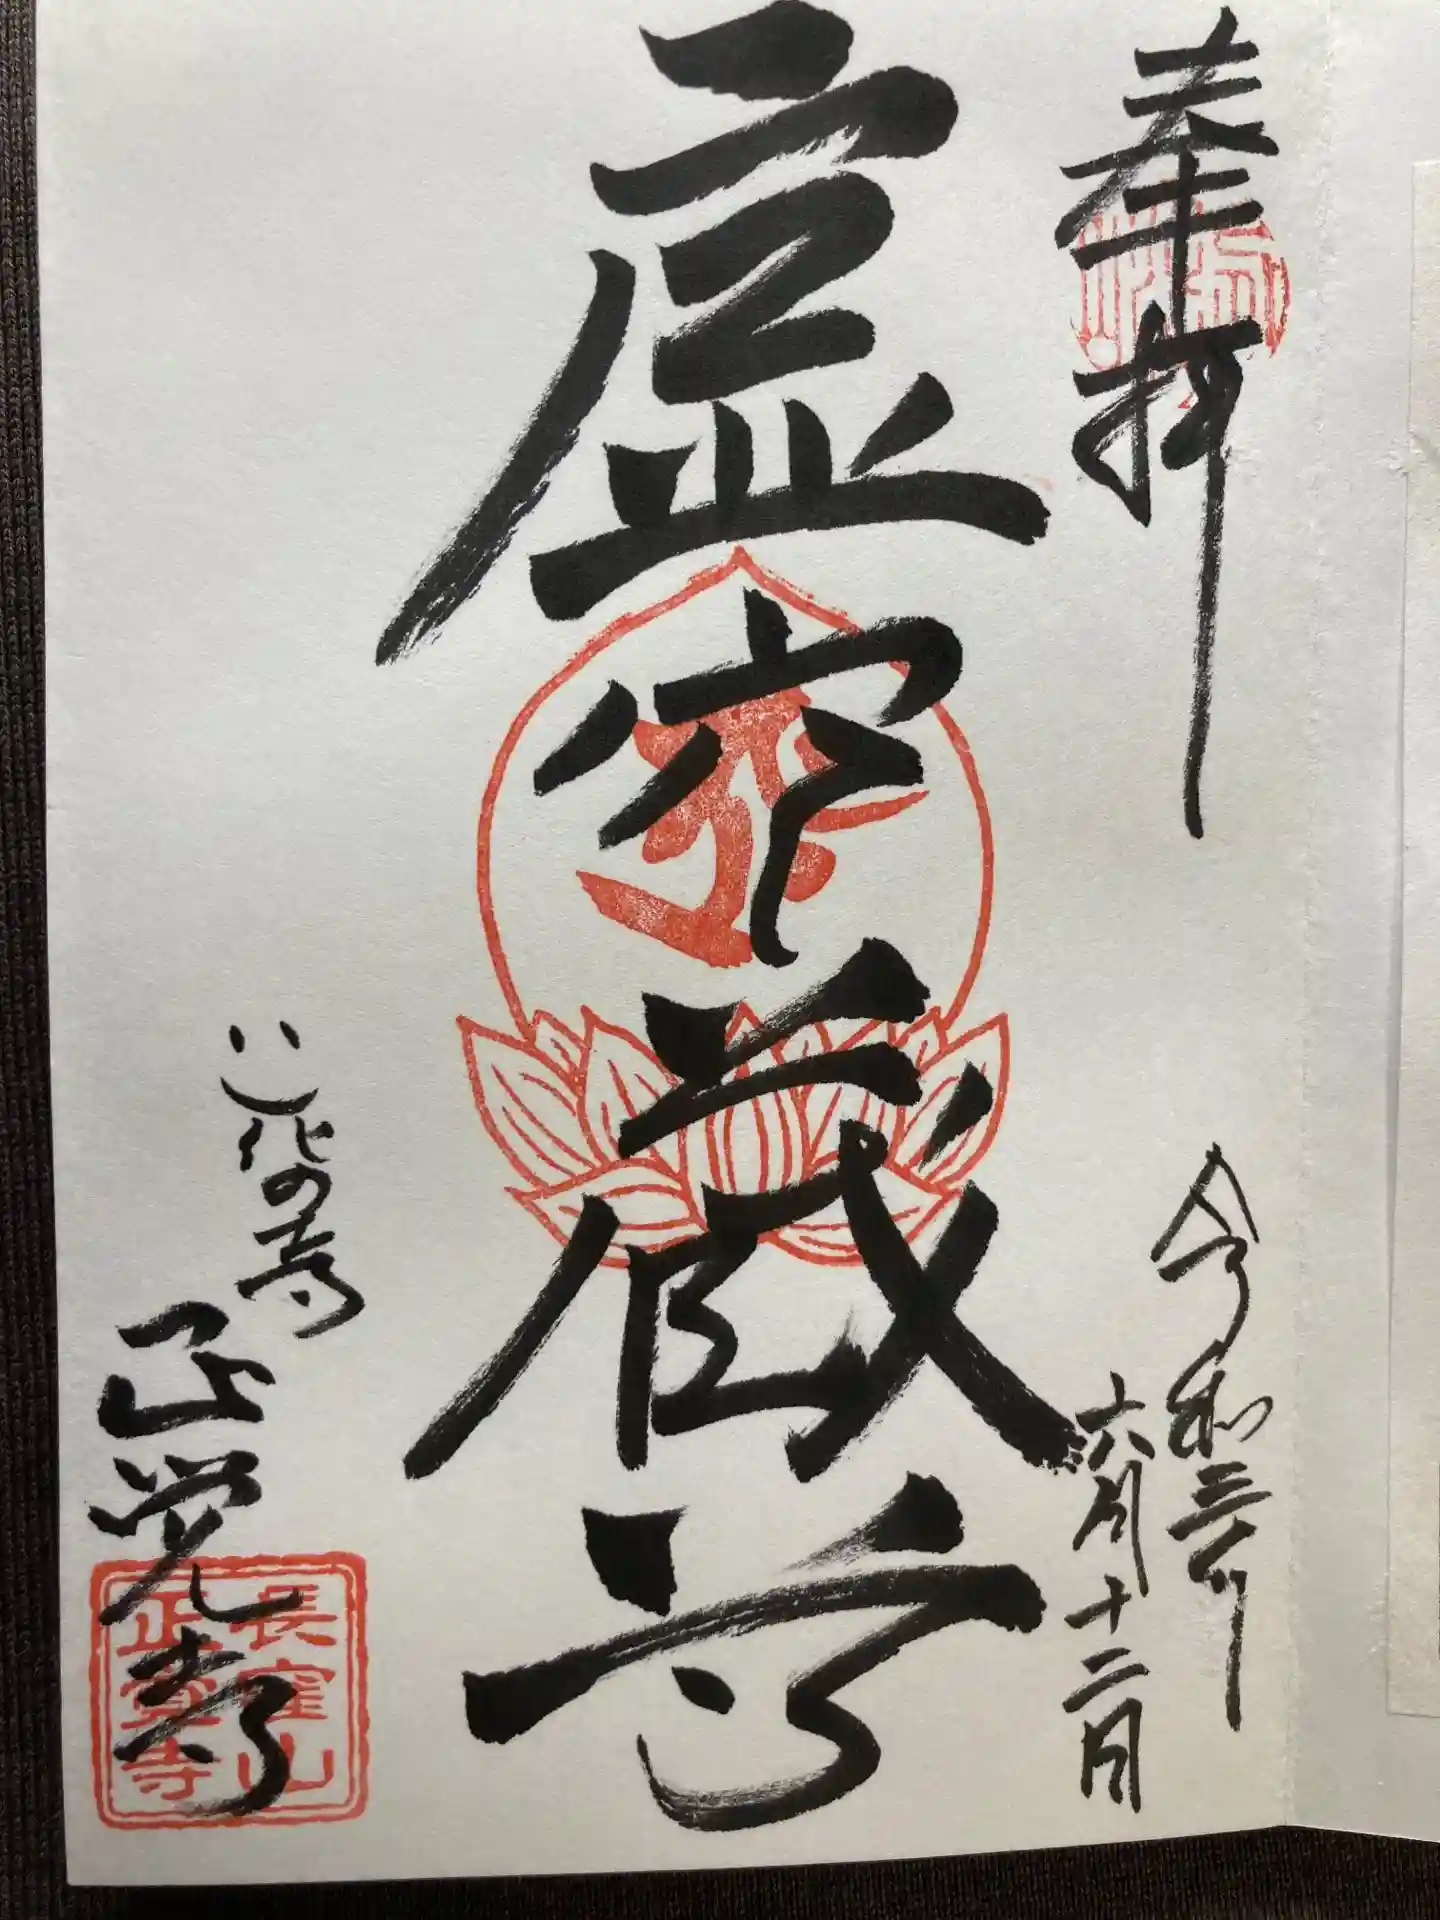 奉拝
令和三年
六月十二日
虚空蔵尊
花の寺
正覚寺
長窪山
正覺寺